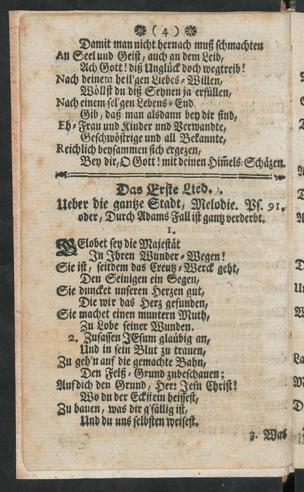 ( 4 )
Damit man nicht hernach muß schmachten
An Seel und Geist, auch an dem Leib,
Ach Gott! diß Unglück doch wegtreib!
Nach deinem heil'gen Liebes-Willen,
Wöllst du diß Sehnen ja erfüllen,
Nach einem sel'gen Lebens-End
Gib, daß man alsdann bey dir find,
Eh-Frau und Kinder und Verwandte,
Geschwöstrige und all Bekannte,
Reichlich beysammen sich ergezen,
Bey dir, O Gott! mit deinen Him̄els-Schäzen.
Das Erste Lied.
Ueber die gantze Stadt, Melodie. Ps. 91.
oder, Durch Adams Fall ist gantz verderbt.
1.
GElobet sey die Majestät
In Ihren Wunder-Wegen!
Sie ist, seitdem das Creutz-Werck geht,
Den Seinigen ein Segen,
Sie duncket unseren Herzen gut,
Die wir das Herz gefunden,
Sie machet einen muntern Muth,
Zu Lobe seiner Wunden.
2. Zufassen JEsum glaubig an,
Und in sein Blut zu trauen,
Zu geh'n auf die gemachte Bahn,
Den Felß-Grund zubeschauen;
Auf dich den Grund, Herr Jesu Christ!
Wo du der Eckstein heissest,
Zu bauen, was dir g'fällig ist,
Und du uns selbsten weisest.
3. Was